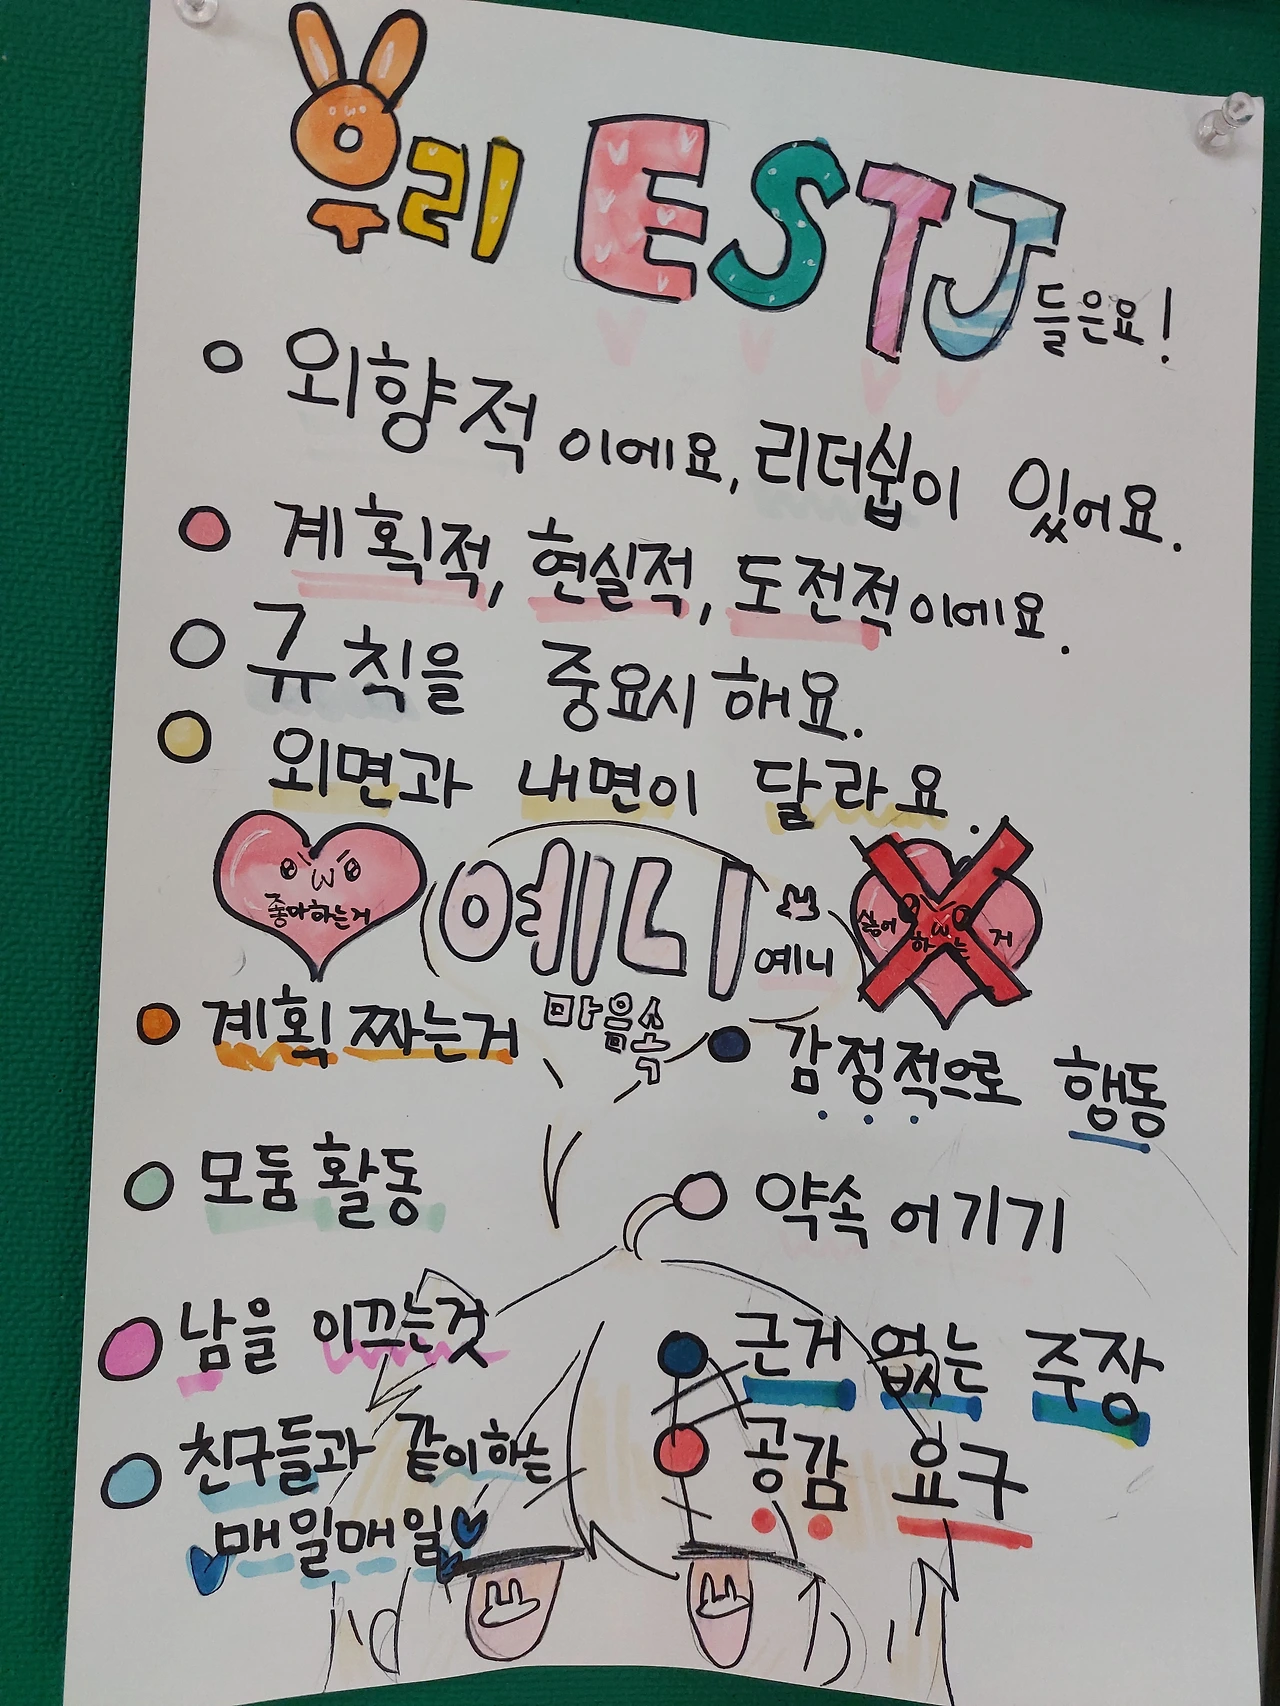 우리 ESTJ들은요!
외향적이에요, 리더쉽이 있어요.
계획적, 현실적, 도전적이에요.
규칙을 중요시 해요.
외면과 내면이 달라요.
좋아하는거
예니
예니
마음속
싫어하는 거
계획 짜는거
모둠 활동
남을 이끄는것
친구들과 같이하는
매일매일
감정적으로 행동
약속 어기기
근거 없는 주장
공감 요구